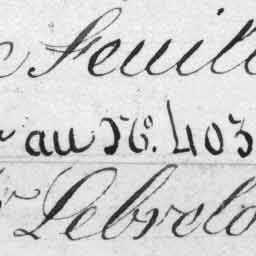 Feuill
au No. 403
Lebrelo